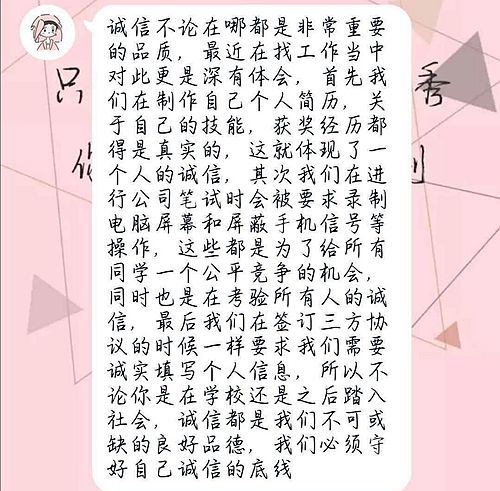 诚信不论在哪都是非常重要
的品质，最近在找工作当中
对此更是深有体会，首先我
们在制作自己个人简历，关
于自己的技能，获奖经历都
得是真实的，这就体现了一
个人的诚信，其次我们在进
行公司笔试时会被要求录制
电脑屏幕和屏蔽手机信号等
操作，这些都是为了给所有
同学一个公平竞争的机会，
同时也是在考验所有人的诚
信，最后我们在签订三方协
议的时候一样要求我们需要
诚实填写个人信息，所以不
论你是在学校还是之后踏入
社会，诚信都是我们不可或
缺的良好品德，我们必须守
好自己诚信的底线
只
秀